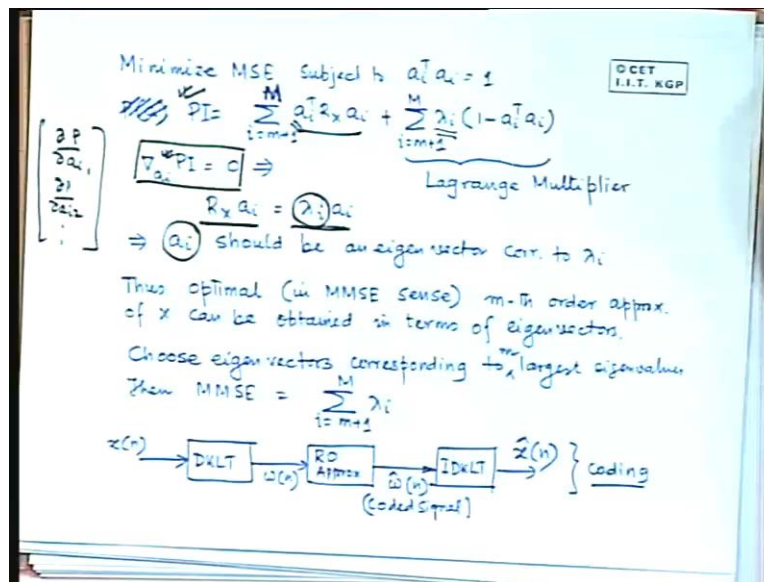 Minimize MSE Subject to aᵢᵀ aᵢ = 1
© CET
I.I.T. KGP
PI = Σ_{i=m+1}^{M} aᵢᵀ Rₓ aᵢ + Σ_{i=m+1}^{M} λᵢ (1 - aᵢᵀ aᵢ)
Lagrange Multiplier
∂P/∂aᵢ₁
∂P/∂aᵢ₂
⋮
∇_{aᵢ} PI = 0 ⇒
Rₓ aᵢ = λᵢ aᵢ
⇒ aᵢ should be an eigen vector corr. to λᵢ
Thus optimal (in MMSE sense) m-th order approx.
of x can be obtained in terms of eigenvectors.
Choose eigen vectors corresponding to m largest eigenvalues
Then MMSE = Σ_{i=m+1}^{M} λᵢ
x(n) → DKLT → ω(n) → RO Approx → ω̂(n) → IDKLT → x̂(n) } Coding
(Coded Signal)